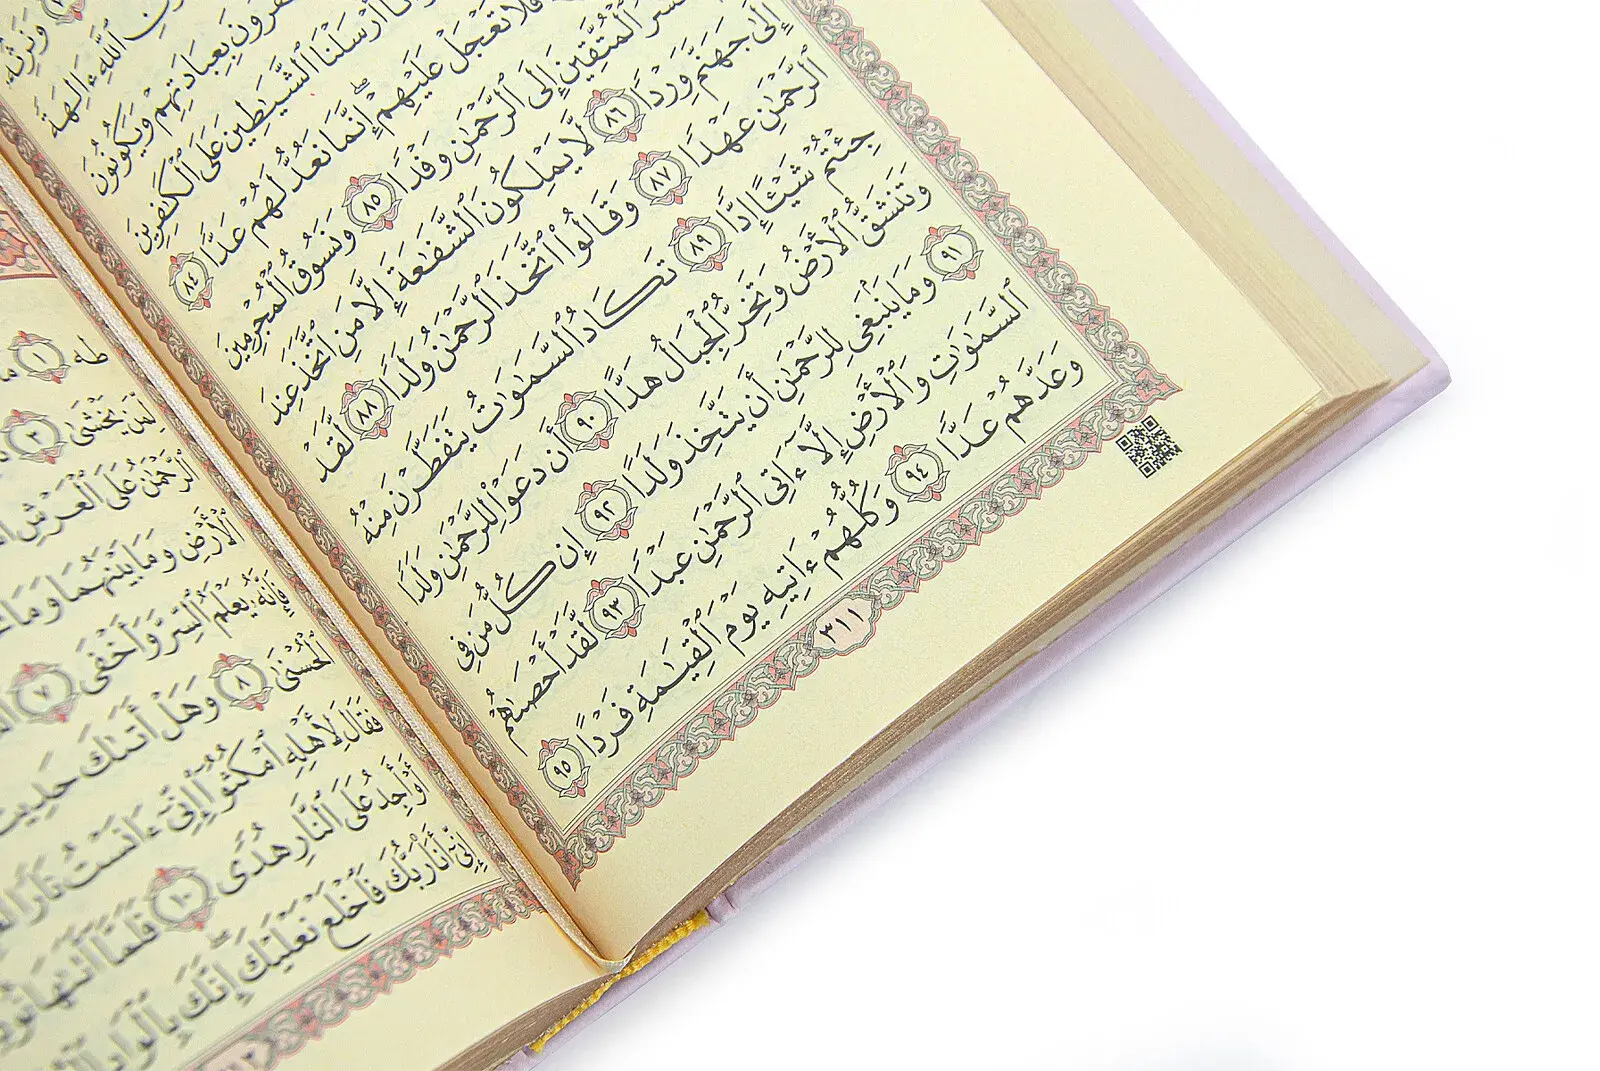 وَنَرِثُهُۥ
ٱللَّهِ ءَالِهَةً
بِعِبَادَتِهِمْ وَيَكُونُونَ
أَرْسَلْنَا ٱلشَّيَٰطِينَ عَلَى ٱلْكَٰفِرِينَ
فَلَا تَعْجَلْ عَلَيْهِمْ ۖ إِنَّمَا نَعُدُّ لَهُمْ عَدًّا ٨٤
ٱلْمُتَّقِينَ إِلَى ٱلرَّحْمَٰنِ وَفْدًا ٨٥ وَنَسُوقُ ٱلْمُجْرِمِينَ
إِلَىٰ جَهَنَّمَ وِرْدًا ٨٦ لَّا يَمْلِكُونَ ٱلشَّفَٰعَةَ إِلَّا مَنِ ٱتَّخَذَ عِندَ
ٱلرَّحْمَٰنِ عَهْدًا ٨٧ وَقَالُوا۟ ٱتَّخَذَ ٱلرَّحْمَٰنُ وَلَدًا ٨٨ لَّقَدْ
جِئْتُمْ شَيْـًٔا إِدًّا ٨٩ تَكَادُ ٱلسَّمَٰوَٰتُ يَتَفَطَّرْنَ مِنْهُ
وَتَنشَقُّ ٱلْأَرْضُ وَتَخِرُّ ٱلْجِبَالُ هَدًّا ٩٠ أَن دَعَوْا۟ لِلرَّحْمَٰنِ وَلَدًا
٩١ وَمَا يَنۢبَغِى لِلرَّحْمَٰنِ أَن يَتَّخِذَ وَلَدًا ٩٢ إِن كُلُّ مَن فِى
ٱلسَّمَٰوَٰتِ وَٱلْأَرْضِ إِلَّآ ءَاتِى ٱلرَّحْمَٰنِ عَبْدًا ٩٣ لَّقَدْ أَحْصَىٰهُمْ
وَعَدَّهُمْ عَدًّا ٩٤ وَكُلُّهُمْ ءَاتِيهِ يَوْمَ ٱلْقِيَٰمَةِ فَرْدًا ٩٥
٣١١
طه ١
لِّمَن يَخْشَىٰ ٣
ٱلرَّحْمَٰنُ عَلَى ٱلْعَرْشِ
ٱلْأَرْضِ وَمَا بَيْنَهُمَا وَمَا
فَإِنَّهُۥ يَعْلَمُ ٱلسِّرَّ وَأَخْفَى ٧
ٱلْحُسْنَىٰ ٨ وَهَلْ أَتَىٰكَ حَدِيثُ
فَقَالَ لِأَهْلِهِ ٱمْكُثُوٓا۟ إِنِّىٓ ءَانَسْتُ نَارًا
أَوْ أَجِدُ عَلَى ٱلنَّارِ هُدًى ١٠ فَلَمَّآ أَتَىٰهَا
إِنِّىٓ أَنَا۠ رَبُّكَ فَٱخْلَعْ نَعْلَيْكَ ۖ إِنَّكَ بِٱلْوَادِ